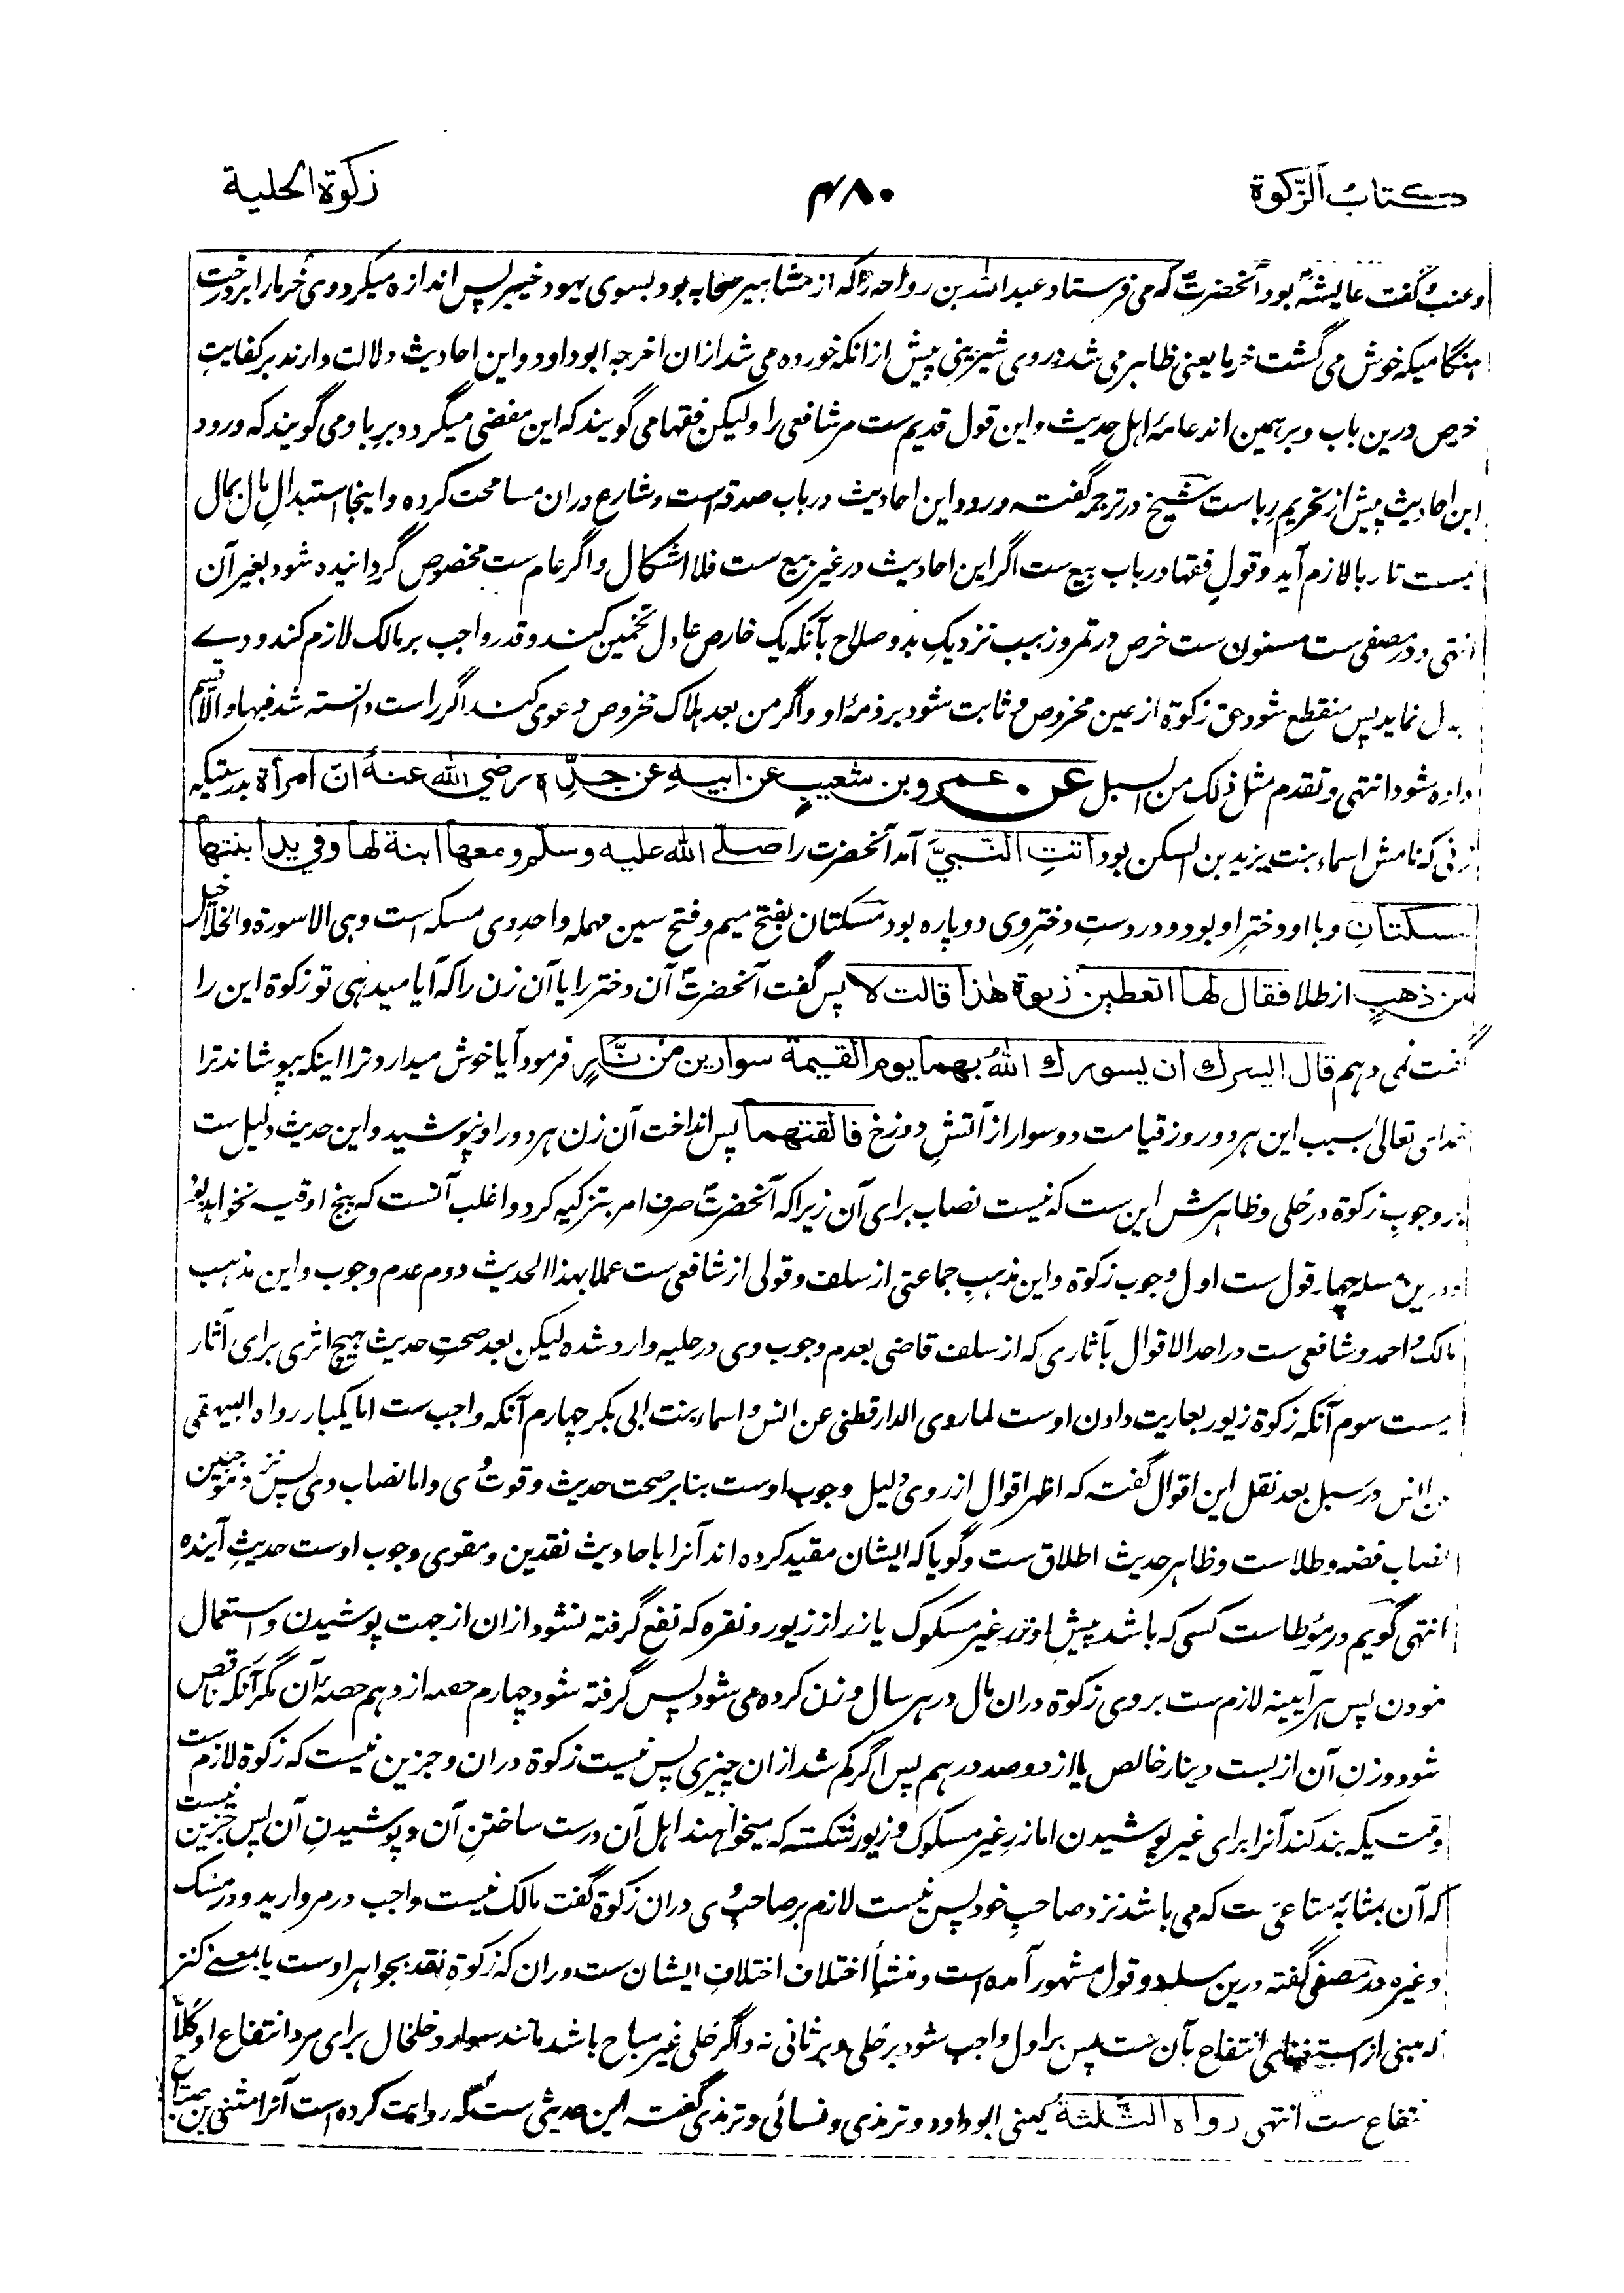 کتاب الزکوة
۴۸۰
زکوة الحلیة
وعنب گفت عایشہ بود آنحضرت کہ می فرستاد عبداللہ بن رواحہ را کہ از مشاہیر صحابہ بود بسوی یہود خیبر پس اندازہ میکرد وی خرما را بر درخت
ہنگامیکہ خوش می گشت خرما یعنی ظاہر می شد در وی شیرینی پیش از انکہ خوردہ می شد ازان اخرجہ ابوداود و این احادیث دلالت دارند بر کفایت
خرص درین باب و بر ہمین اند عامۂ اہل حدیث و این قول قدیم ست مر شافعی را و لیکن فقہا می گویند کہ این مفضی میگردد بربا و می گویند کہ ورود
این احادیث پیش از تحریم ربا ست شیخ در ترجمہ گفتہ ورود این احادیث در باب صدقہ است و شارع دران مسامحت کردہ و اینجا استبدال مال بمال
نیست تا ربا لازم آید و قول فقہا در باب بیع ست اگر این احادیث در غیر بیع ست فلا اشکال و اگر عام ست مخصوص گردانیدہ شود بغیر آن
انتہی و در مصفی ست مسنون ست خرص در تمر و زبیب نزدیک بدو صلاح بآنکہ یک خارص عادل تخمین کند و قدر واجب بر مالک لازم کند و دے
بدل نماید پس منقطع شود حق زکوة از عین مخروص و ثابت شود بر ذمۂ او و اگر من بعد ہلاک مخروص دعوی کند اگر راست دانستہ شد فبہا والا قسم
دادہ شود انتہی و تقدم مثل ذلک من السبل عن عمرو بن شعیب عن ابیه عن جدّه رضي الله عنه انّ امرأة بدرستیکہ
زنی کہ نامش اسماء بنت یزید بن السکن بود اتتِ النّبيَّ آمد آنحضرت را صلّے الله علیه وسلّم ومعها ابنة لها وفي ید ابنتها
مسکتان و با او دختر او بود و در دست دختر وی دو پارہ بود مسکتان بفتح میم و فتح سین مہملہ واحد وی مسکہ است و ہی الاسورة والخلاخیل
من ذهبٍ از طلا فقال لها اتعطین زکوة هذا قالت لا پس گفت آنحضرت آن دختر را یا آن زن را کہ آیا میدہی تو زکوة این را
گفت نمی دہم قال ایسرك ان یسورك اللهُ بهما یوم القیمة سوارین من نّارٍ فرمود آیا خوش میدارد ترا اینکہ بپوشاند ترا
خدای تعالی بسبب این ہر دو روز قیامت دو سوار از آتش دوزخ فالقتهما پس انداخت آن زن ہر دو را و نپوشید و این حدیث دلیل ست
بر وجوب زکوة در حلی و ظاہرش این ست کہ نیست نصاب برای آن زیرا کہ آنحضرت صرف امر بتزکیہ کرد و اغلب آنست کہ پنج اوقیہ نخواہد بود
و درین مسلہ چہار قول ست اول وجوب زکوة و این مذہب جماعتی از سلف و قولی از شافعی ست عملا بہذا الحدیث دوم عدم وجوب و این مذہب
مالک و احمد و شافعی ست در احد الاقوال بآثاری کہ از سلف قاضی بعدم وجوب وی در حلیہ وارد شدہ لیکن بعد صحت حدیث ہیچ اثری برای آثار
نیست سوم آنکہ زکوة زیور بعاریت دادن اوست لما روی الدارقطنی عن انس و اسماء بنت ابی بکر چہارم آنکہ واجب ست اما یکبار رواہ البیہقی
عن انس در سبل بعد نقل این اقوال گفتہ کہ اظہر اقوال از روی دلیل وجوب اوست بنا بر صحت حدیث و قوت وی و اما نصاب وی پس نزد موجبین
نصاب فضہ و طلا ست و ظاہر حدیث اطلاق ست و گویا کہ ایشان مقید کردہ اند آنرا باحادیث نقدین و مقوی وجوب اوست حدیث آیندہ
انتہی گویم در مؤطا ست کسی کہ باشد پیش او زر غیر مسکوک یا زر از زیور و نقرہ کہ نفع گرفتہ نشود ازان از جہت پوشیدن و استعمال
نمودن پس ہر آیینہ لازم ست بر وی زکوة دران مال در ہر سال وزن کردہ می شود پس گرفتہ شود چہارم حصہ از دہم حصۂ آن مگر آنکہ ناقص
شود وزن آن از بست دینار خالص یا از دو صد درہم پس اگر کم شد ازان چیزی پس نیست زکوة دران و جزین نیست کہ زکوة لازم ست
وقتیکہ بند کند آنرا برای غیر پوشیدن اما زر غیر مسکوک و زیور شکستہ کہ میخواہند اہل آن درست ساختن آن و پوشیدن آن پس جزین نیست
کہ آن بمثابۂ متاعی ست کہ می باشد نزد صاحب خود پس نیست لازم بر صاحب وی دران زکوة گفت مالک نیست واجب در مروارید و در مشک
و غیرہ در مصفی گفتہ درین مسلہ دو قول مشہور آمدہ است و منشأ اختلاف اختلاف ایشان ست دران کہ زکوة نقد بجواہر اوست یا بمعنے کنز
کہ مبنی از استغنای انتفاع بآن ست پس بر اول واجب شود بر حلی و بر ثانی نہ و اگر حلی غیر مباح باشد مانند سوار و خلخال برای مرد انتفاع او کلا
انتفاع ست انتہی رواه الثّلثة یعنی ابوداود و ترمذی و نسائی و ترمذی گفتہ این حدیثی ست کہ روایت کردہ است آنرا مثنی بن صباح